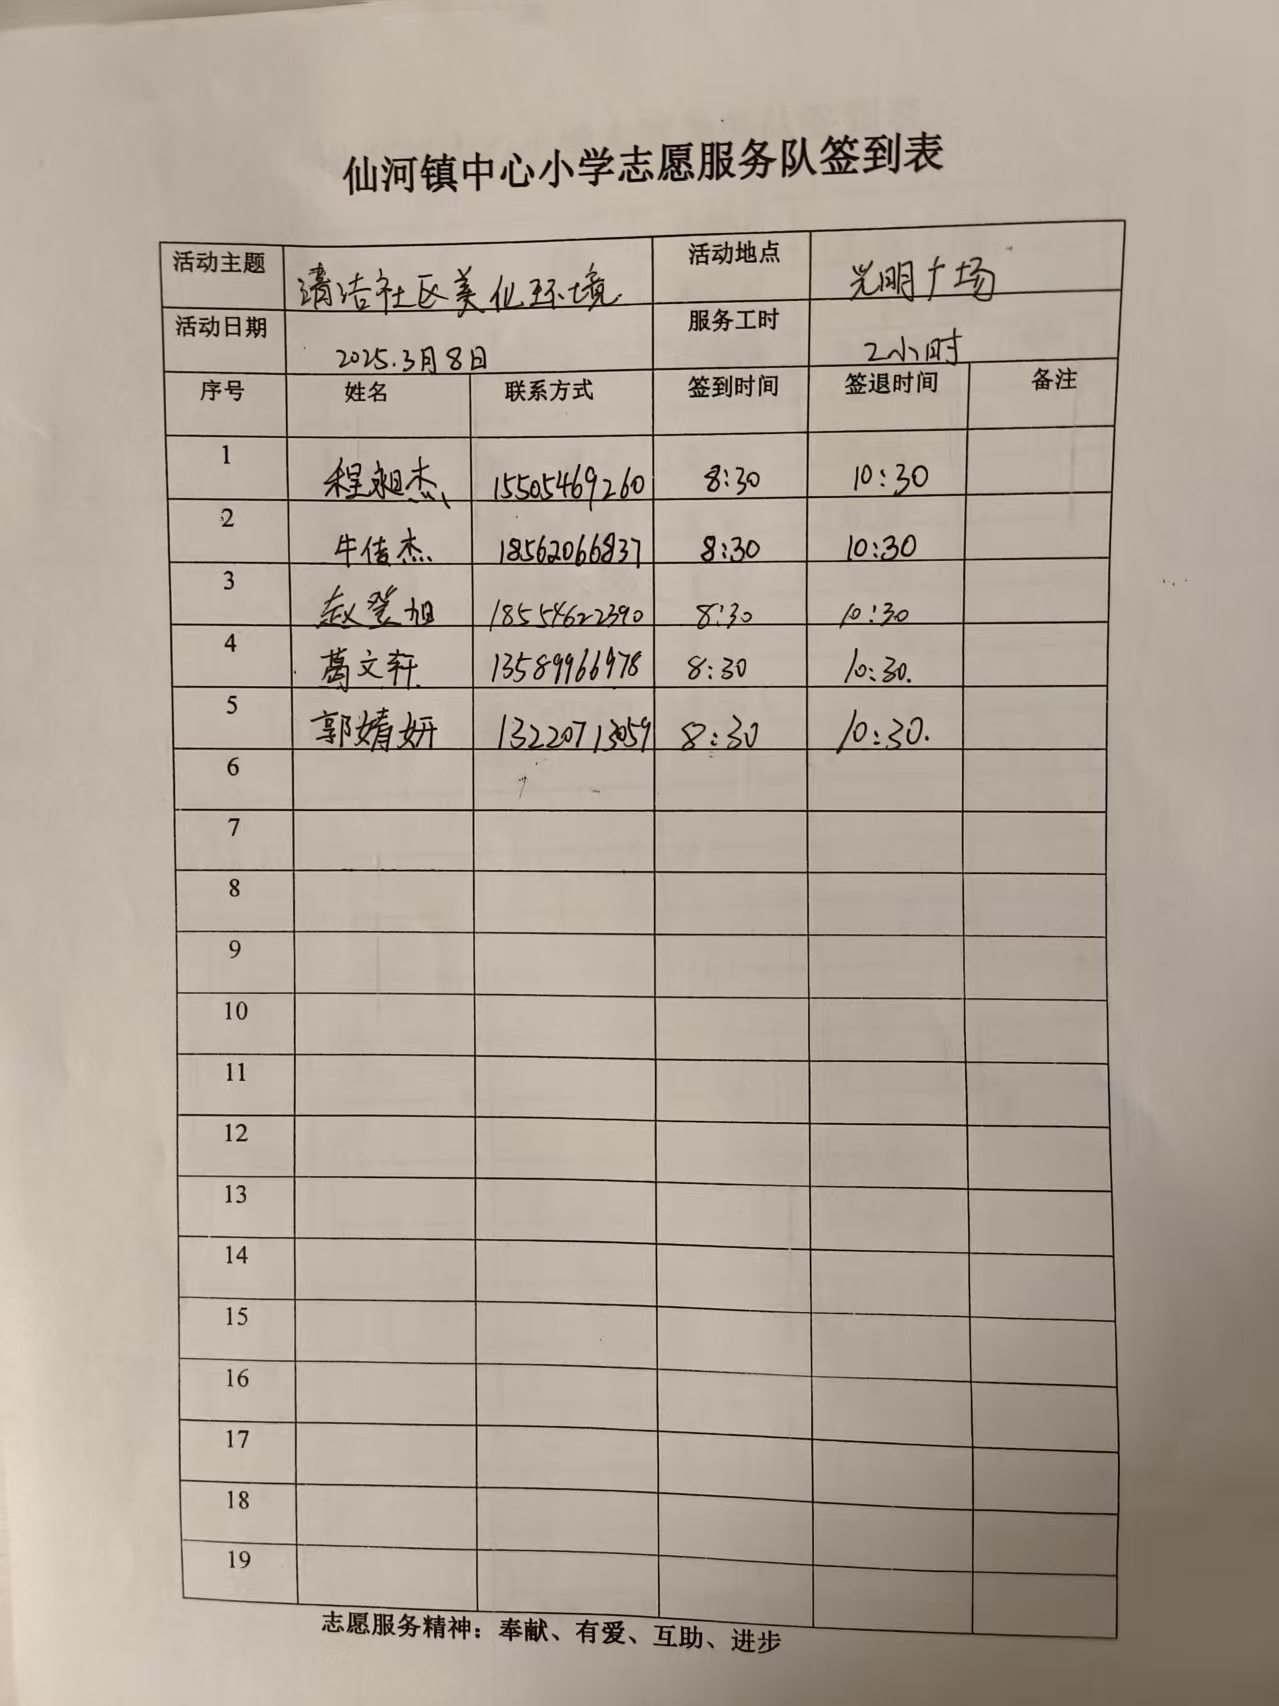 仙河镇中心小学志愿服务队签到表
活动主题 清洁社区美化环境 活动地点 光明广场
活动日期 2025.3月8日 服务工时 2小时
序号 姓名 联系方式 签到时间 签退时间 备注
1 程昶杰 15505469260 8:30 10:30
2 牛佳杰 18562066837 8:30 10:30
3 赵登旭 18554622390 8:30 10:30
4 葛文轩 13589966978 8:30 10:30.
5 郭婧妍 13220713059 8:30 10:30.
6
7
8
9
10
11
12
13
14
15
16
17
18
19
志愿服务精神：奉献、有爱、互助、进步